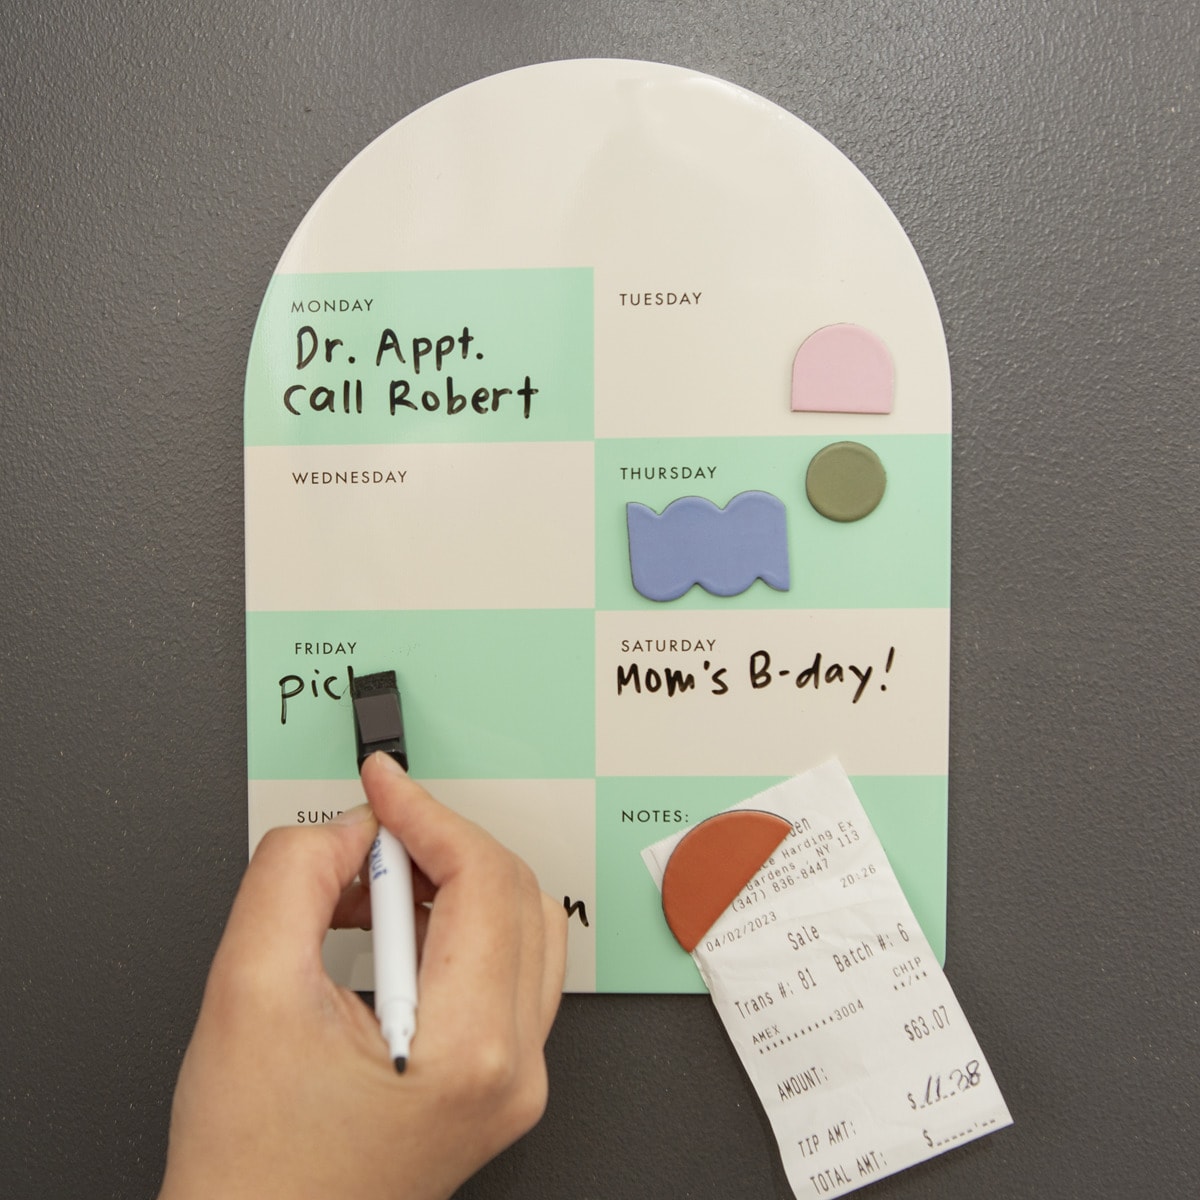 MONDAY
Dr. Appt.
Call Robert
TUESDAY
WEDNESDAY
THURSDAY
FRIDAY
pic
SATURDAY
Mom's B-day!
NOTES:
Harding Ex
Gardens , NY 113
(347) 836-8447
04/02/2023
20:26
Sale
Trans #: 81 Batch #: 6
AMEX
CHIP
***********3004
**/**
AMOUNT: $63.07
TIP AMT: $ 11.38
TOTAL AMT: $